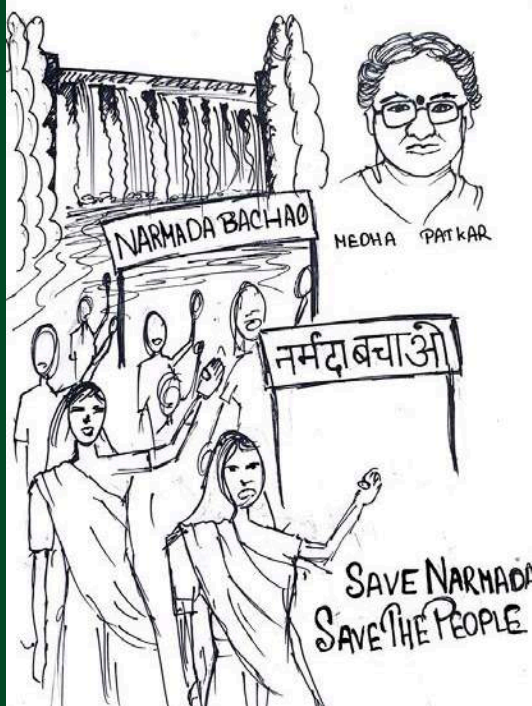 NARMADA BACHAO
MEDHA PATKAR
नर्मदा बचाओ
SAVE NARMADA
SAVE THE PEOPLE